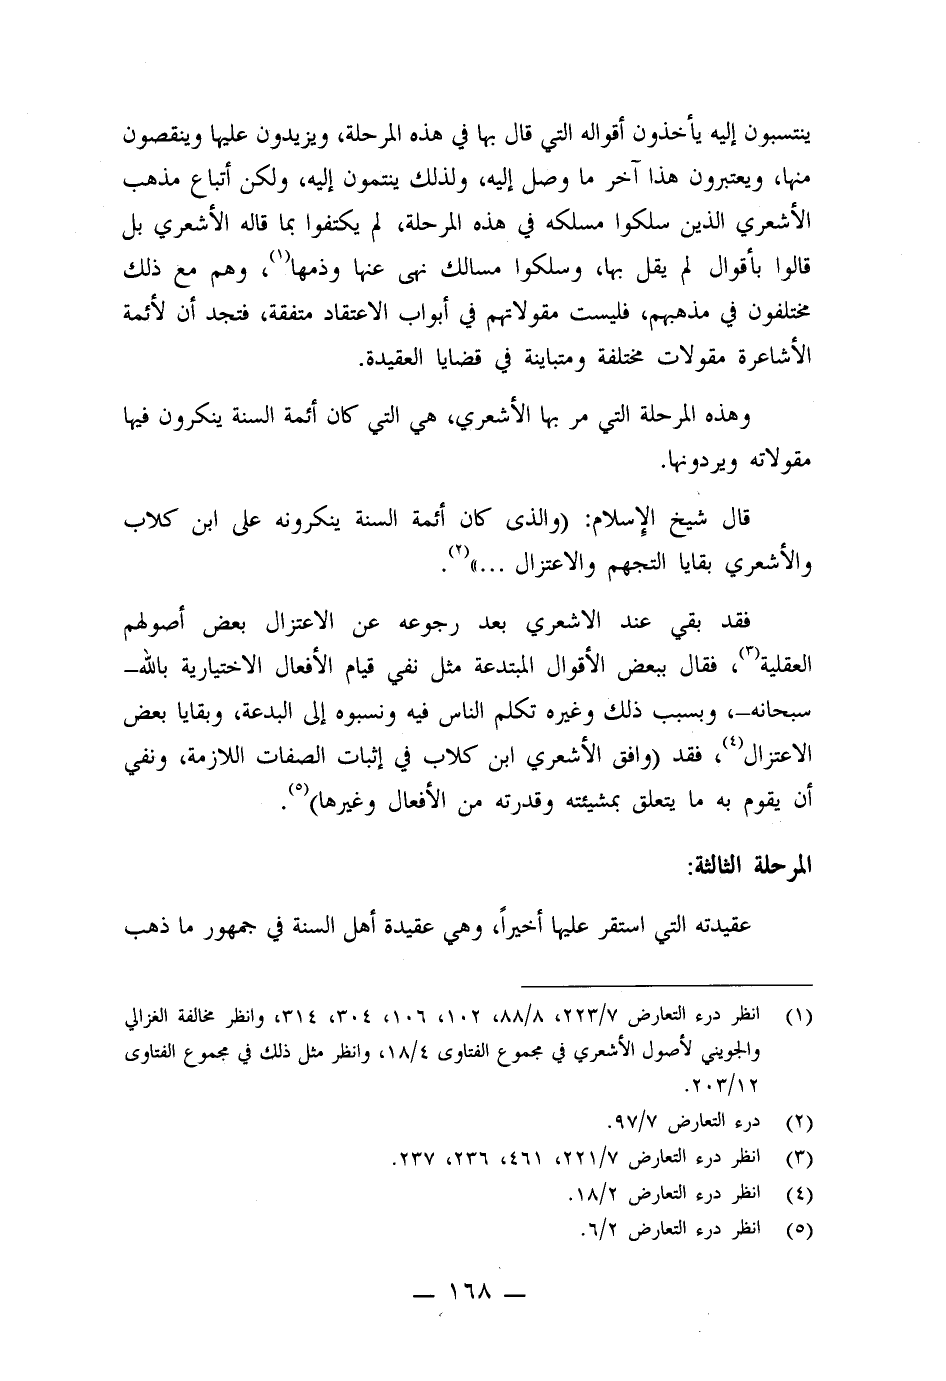 ينتسبون إليه يأخذون أقواله التي قال بها في هذه المرحلة، ويزيدون عليها وينقصون
منها، ويعتبرون هذا آخر ما وصل إليه، ولذلك ينتمون إليه، ولكن أتباع مذهب
الأشعري الذين سلكوا مسلكه في هذه المرحلة، لم يكتفوا بما قاله الأشعري بل
قالوا بأقوال لم يقل بها، وسلكوا مسالك نهى عنها وذمها(١)، وهم مع ذلك
مختلفون في مذهبهم، فليست مقولاتهم في أبواب الاعتقاد متفقة، فتجد أن لأئمة
الأشاعرة مقولات مختلفة ومتباينة في قضايا العقيدة.
وهذه المرحلة التي مر بها الأشعري، هي التي كان أئمة السنة ينكرون فيها
مقولاته ويردونها.
قال شيخ الإسلام: (والذى كان أئمة السنة ينكرونه على ابن كلاب
والأشعري بقايا التجهم والاعتزال ...»(٢).
فقد بقي عند الاشعري بعد رجوعه عن الاعتزال بعض أصولهم
العقلية(٣)، فقال ببعض الأقوال المبتدعة مثل نفي قيام الأفعال الاختيارية بالله–
سبحانه–، وبسبب ذلك وغيره تكلم الناس فيه ونسبوه إلى البدعة، وبقايا بعض
الاعتزال(٤)، فقد (وافق الأشعري ابن كلاب في إثبات الصفات اللازمة، ونفي
أن يقوم به ما يتعلق بمشيئته وقدرته من الأفعال وغيرها)(٥).
المرحلة الثالثة:
عقيدته التي استقر عليها أخيراً، وهي عقيدة أهل السنة في جمهور ما ذهب
(١) انظر درء التعارض ٢٢٣/٧، ٨٨/٨، ١٠٢، ١٠٦، ٣٠٤، ٣١٤، وانظر مخالفة الغزالي
والجويني لأصول الأشعري في مجموع الفتاوى ١٨/٤، وانظر مثل ذلك في مجموع الفتاوى
٢٠٣/١٢.
(٢) درء التعارض ٩٧/٧.
(٣) انظر درء التعارض ٢٢١/٧، ٤٦١، ٢٣٦، ٢٣٧.
(٤) انظر درء التعارض ١٨/٢.
(٥) انظر درء التعارض ٦/٢.
— ١٦٨ —